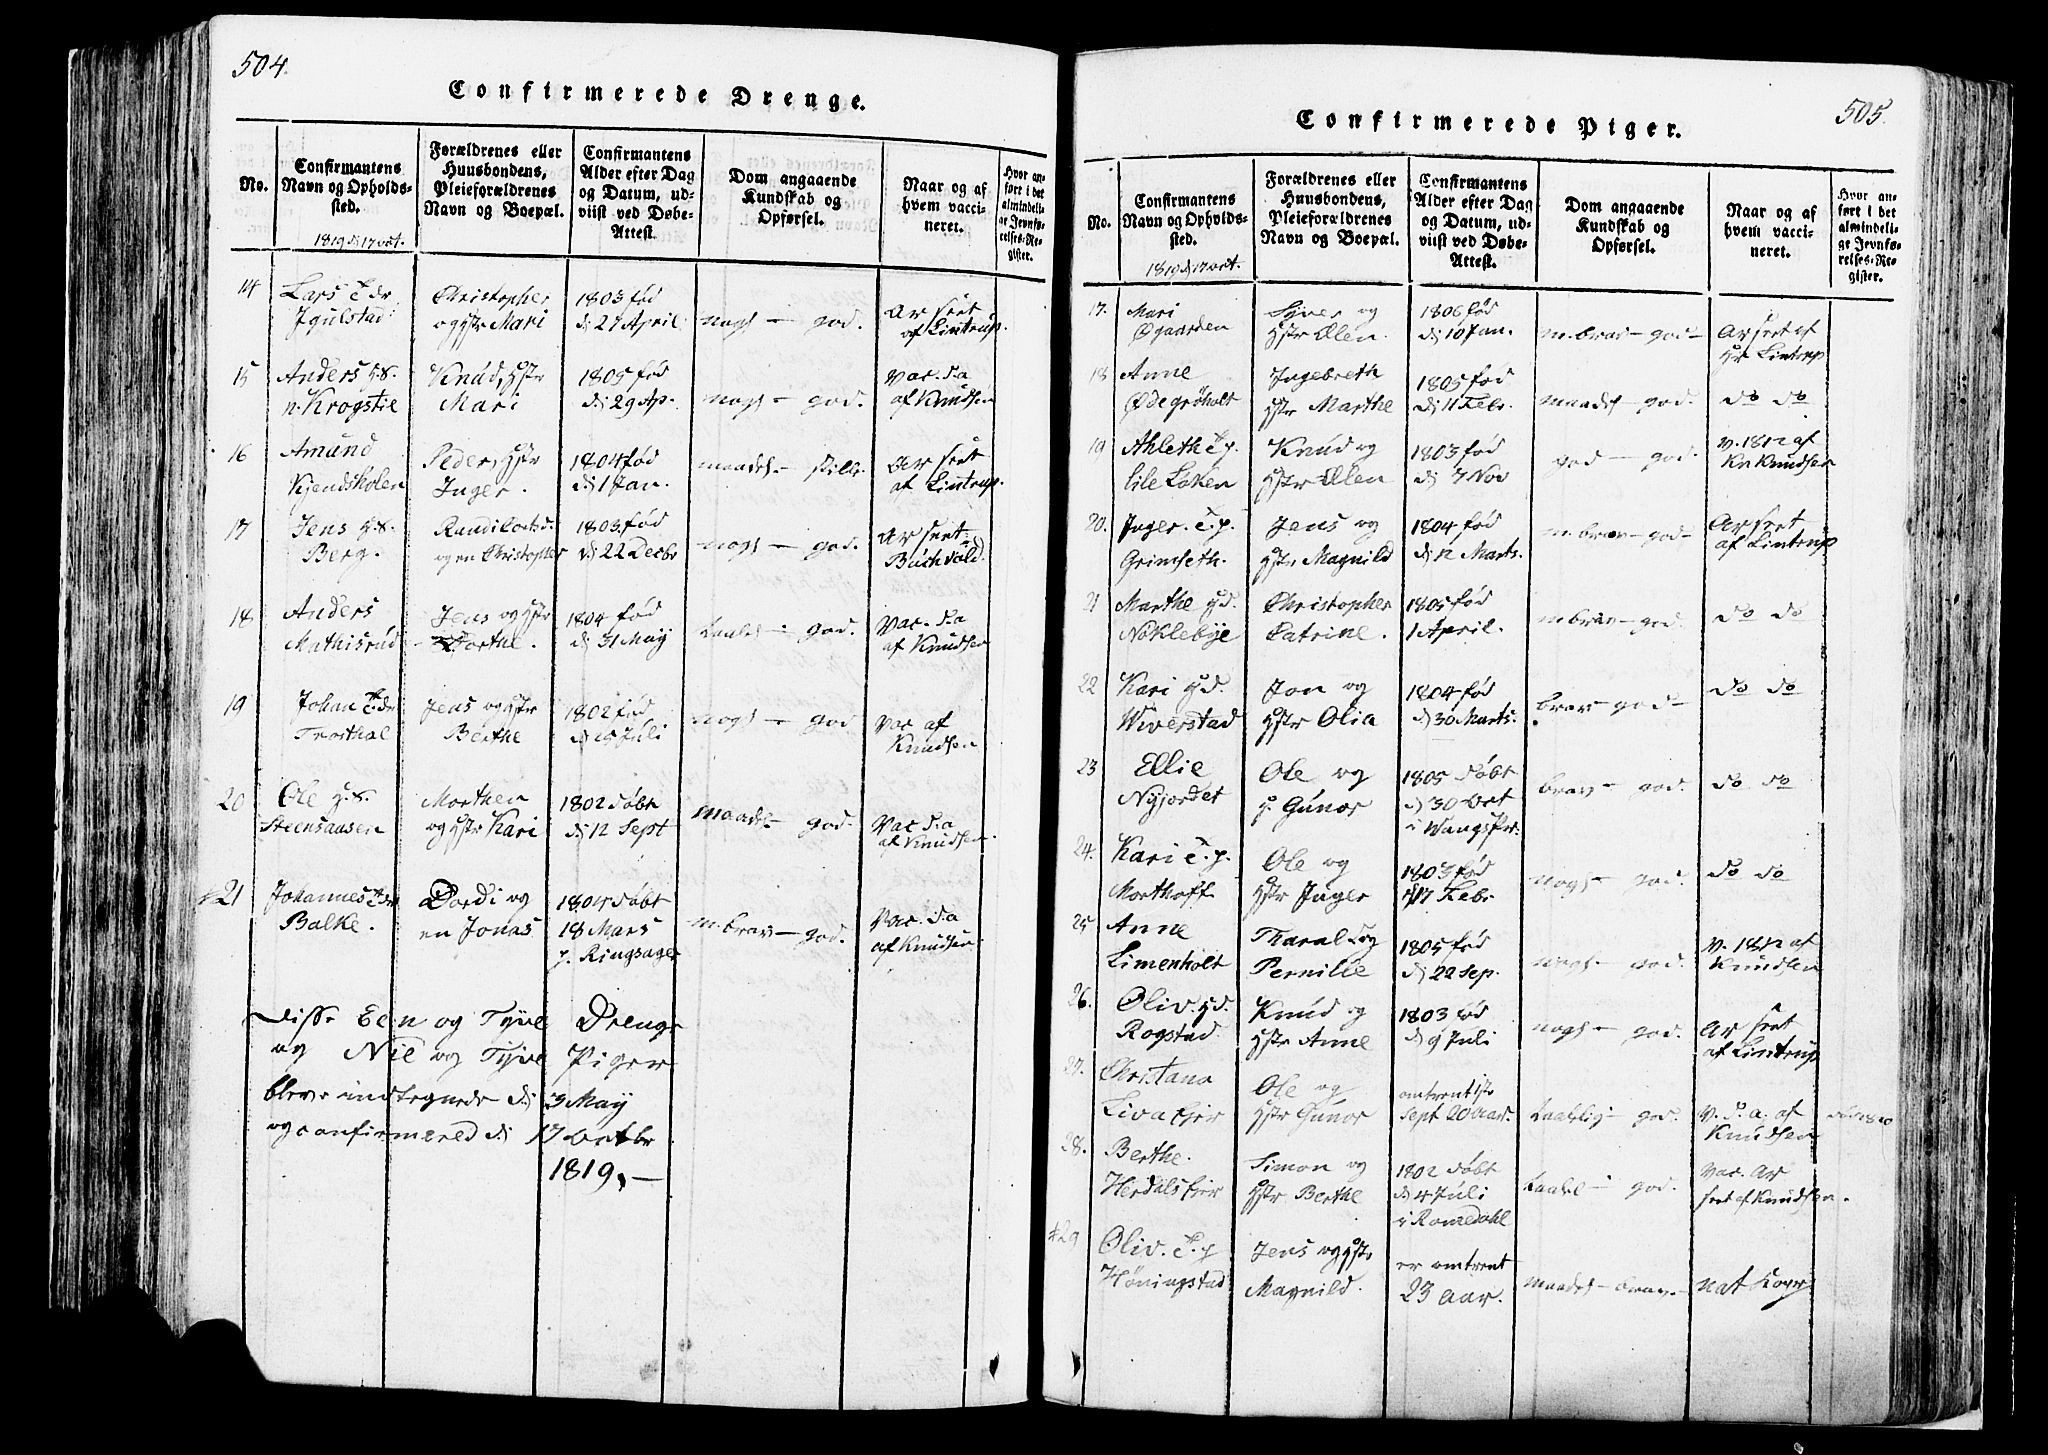 504.
Confirmerede Drenge.
No.
Confirmantens
Navn og Opholds-
sted.
Forældrenes eller
Huusbondens,
Pleieforældrenes
Navn og Boepæl.
Confirmantens
Alder efter Dag
og Datum, ud-
viist ved Døbe-
Attest.
Dom angaaende
Kundskab og
Opførsel.
Naar og af
hvem vacci-
neret.
Hvor an-
ført i det
almindeli-
ge Jevnfø-
relses-Re-
gister.
1819 d 17 oct.
14
Lars
Igulstad
Christopher
og Mari
1803 fød
d 27 April
nogs – god.
Ar seet
af Lintrup.
15
Anders
n. Krogstie
Knud,
Mari
1805 fød
d 29 Ap.
nogs – god.
Vac. d. a
af Knudsen
16
Amund
Kjendsholen
Peder,
Inger.
1804 fød
d 1 Jan.
maadel. –
Ar seet
af Lintrup.
17
Jens
Berg.
Randi
og en Christopher
1803 fød
d 22 Decbr
nogs – god.
Ar seet
Buchvold.
18
Anders
Mathisrud
Jens og
Dorthe.
1804 fød
d 31 May
taalel – god.
Vac. d. a
af Knudsen
19
Johan
Trosthol
Jens og
Berthe
1802 fød
d 25 Juli
nogs – god
Vac af
Knudsen
20
Ole
Steensaasen
Morthen
og Kari
1802 døbt
d 12 Sept
maadel – god.
Vac d. a
af Knudsen
21
Johannes
Balke.
Dordi og
en Jonas
1804 døbt
18 Mars
p. Ringsager
m. brav – god.
Vac. d. a
af Knudsen
Disse Een og Tyve Drenge
og Nie og Tyve Piger
bleve indtegnede d 3 May
og confirmered d 17 Octbr
1819. –
505.
Confirmerede Piger.
No.
Confirmantens
Navn og Opholds-
sted.
Forældrenes eller
Huusbondens,
Pleieforældrenes
Navn og Boepæl.
Confirmantens
Alder efter Dag
og Datum, ud-
viist ved Døbe-
Attest.
Dom angaaende
Kundskab og
Opførsel.
Naar og af
hvem vacci-
neret.
Hvor an-
ført i det
almindeli-
ge Jevnfø-
relses-Re-
gister.
1819 d 17 oct.
17.
Mari
Øgaarden
Syver og
Elen.
1806 fød
d 10 Jan.
m. brav – god –
Ar seet af
Hr Lintrup
18
Anne
Ødegrøholt
Ingebreth
Marthe
1805 fød
d 11 Febr.
maadel – god.
do do
19
Ahleth
lile Løken
Knud og
Elen
1803 fød
d 7 Nov
god – god.
v. 1812 af
Kn Knudsen
20.
Inger.
Grimseth.
Jens og
Magnild
1804 fød
d 12 Marts.
m. brav – god –
Ar seet
af Lintrup
21
Marthe
Nøklebye
Christopher
Catrine.
1805 fød
1 April.
m. brav – god
do do
22
Kari
Wiverstad
Jon og
Olia
1804 fød
d 30 Marts.
brav – god –
do do
23
Ellie
Nyjordet
Ole og
Gunor
1805 døbt
d 30 Oct
i Wangs Pr.
brav – god.
do do
24.
Kari
Morthoff.
Ole og
Inger
1803 fød
17 Febr
nogs – god.
do do
25
Anne
Limenholt
Tharald og
Pernille
1805 fød
d 22 Sep.
nogs – god.
v. 1812 af
Knudsen
26.
Oliv.
Rogstad
Knud og
Anne
1803 fød
d 9 Juli
nogs – god.
Ar seet
af Lintrup
27.
Christana
Ole og
Gunor
omtrent
Sept 20 Aar.
taalelig – god.
V. d. a. af
Knudsen
28.
Berthe.
Simon og
Berthe
1802 døbt
d 4 Juli
i Romedahl
taalel – god.
Vac. Ar
seet af Knudsen.
29
Oliv.
Høningstad
Jens og
Magnild.
er omtrent
23 Aar.
maadel – brav. –
nat Kopr